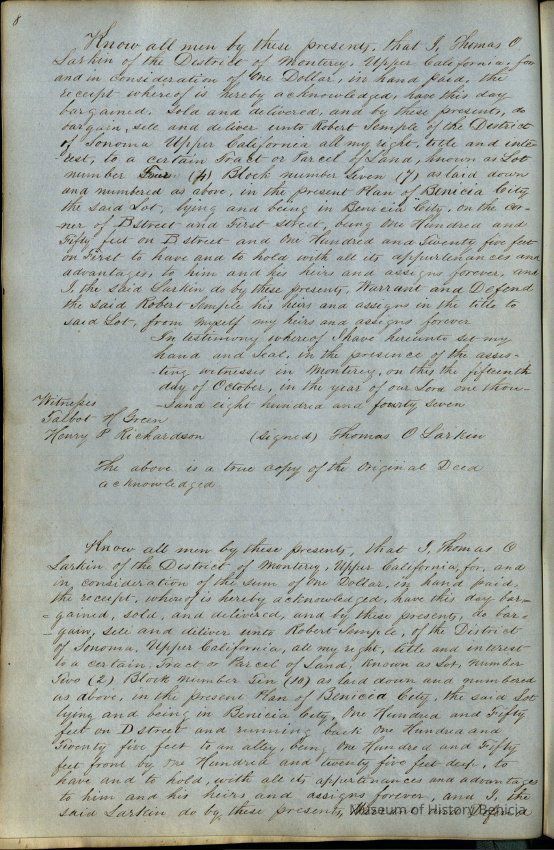 8
Know all men by these presents, that I, Thomas O
Larkin of the District of Monterey, Upper California, for
and in consideration of One Dollar, in hand paid, the
receipt whereof is hereby acknowledged, have this day
bargained, Sold and delivered, and by these presents, do
bargain, sell and deliver unto Robert Semple of the District
of Sonoma Upper California all my right, title and inte
rest, to a certain Tract or Parcel of Land, known as Lot
number Four (4) Block number Seven (7) as laid down
and numbered as above, in the present Plan of Benicia City
the said Lot, lying and being in Benicia City, on the cor-
ner of D street and First street, being One Hundred and
Fifty feet on D street and One Hundred and Twenty five feet
on First to have and to hold with all its appurtenances and
advantages, to him and his heirs and assigns forever, and
I, the said Larkin do by these presents, Warrant and Defend
the said Robert Semple his heirs and assigns in the title to
said Lot, from myself my heirs and assigns forever
In testimony whereof I have hereunto set my
hand and Seal, in the presence of the asses-
-ting witnesses in Monterey, on this the fifteenth
day of October, in the year of our Lord one thou-
-sand eight hundred and fourty seven
Witnesses
Talbot H Green
Henry P Richardson (Signed) Thomas O Larkin
The above is a true copy of the Original Deed
acknowledged
Know all men by these presents, that I, Thomas O
Larkin of the District of Monterey, Upper California, for, and
in, consideration of the sum of One Dollar, in hand paid,
the receipt, whereof is hereby acknowledged, have this day bar=
=gained, sold, and delivered, and by these presents, do bar=
=gain, sell and deliver unto Robert Semple, of the District
of Sonoma, Upper California, all my right, title and interest
to a certain Tract or Parcel of Land, known as Lot, number
Two (2) Block number Ten (10) as laid down and numbered
as above, in the present Plan of Benicia City, the said Lot
lying and being in Benicia City, One Hundred and Fifty
feet on D street and running back One Hundred and
Twenty five feet to an alley, being One Hundred and Fifty
feet front by One Hundred and twenty five feet deep, to
have and to hold, with all its appurtenances and advantages
to him and his heirs and assigns forever, and I, the
said Larkin do by these presents, Warrant and Defend
Museum of History Benicia